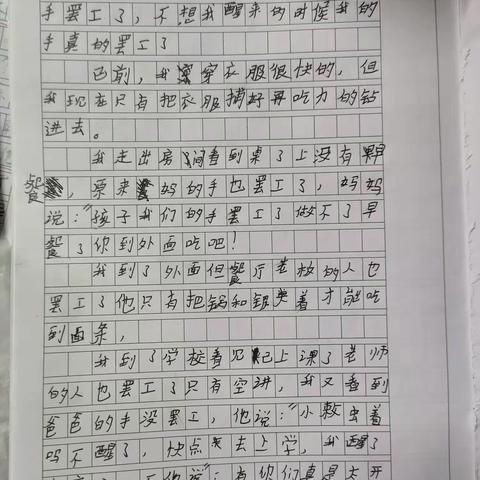 手罢工了，不想我醒来的时候我的
手真的罢工了
已前，我穿衣服很快的，但
我现在只有把衣服摆好再吃力的钻
进去。
我走出房间看到桌子上没有早
餐，原来妈妈的手也罢工了，妈妈
说："孩子我们的手罢工了做不了早
餐了你到外面吃吧！
我到了外面但餐厅老板的人也
罢工了他只有把锅和锅夹着才能吃
到面条，
我到了学校看见已上课了老师
的人也罢工了只有空讲，我又看到
爸爸的手没罢工，他说："小懒虫着
吗不醒了，快点去上学，我醒了
他说"：有你们真是太开